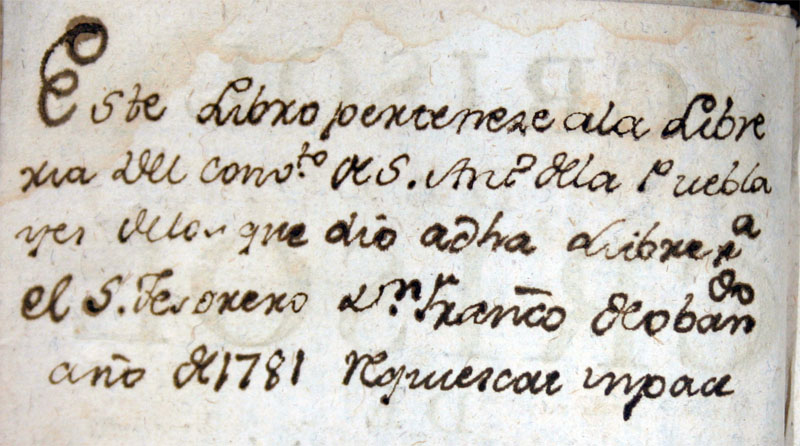 Este Libro perteneze ala Libre
ria del Conv.to de S. Ant.o de la Puebla
yes delos que dio adha Libreria
el S. Tesorero D.n Fran.co de obando
año de 1781 Requiescat inpace